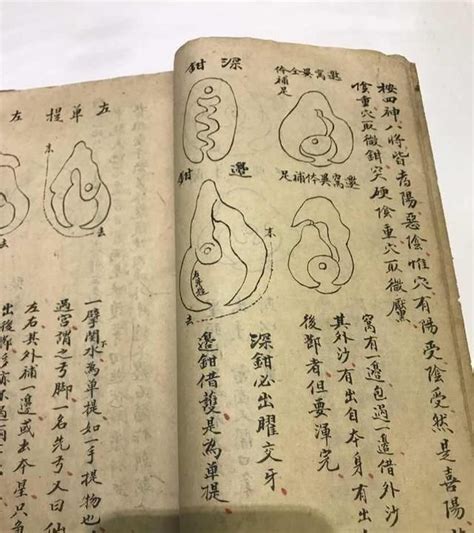 按四神八將皆為陽惡陰惟穴有陽受陰受然是喜陽
陰重穴取微鉗突硬陰重穴取微靨
邊窩異全体補足
邊窩異体補足
窩有一邊包過一邊借外沙
其外沙有出自本身有出
後鄣者但要渾完
深鉗
邊鉗
來
去
深鉗必出曜交牙
邊鉗借護是為單提
左單提
左
來
去
去
一臂関水為單提如一手提物也
下
過宮謂之弓脚一名先弓又曰仙
左右其外補一邊或去本星只角
出後鄣多亦不過一